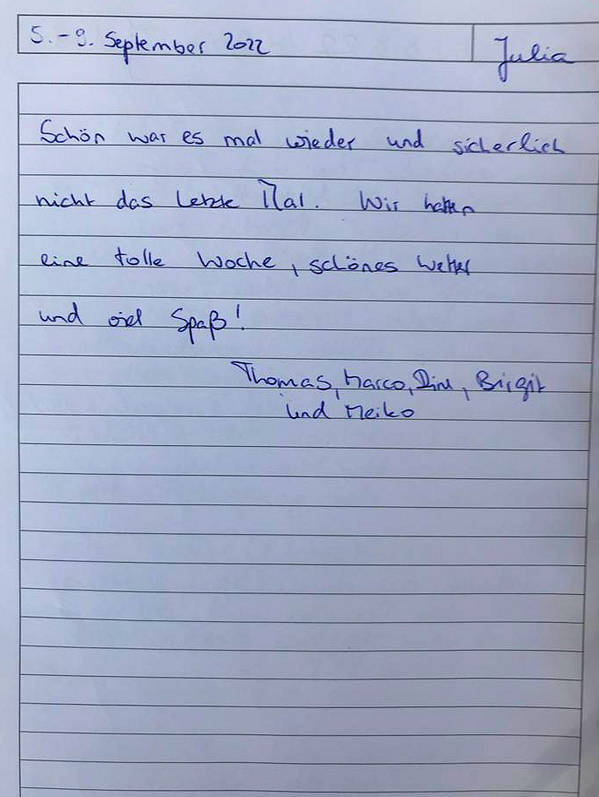 5.-9. September 2022
Julia
Schön war es mal wieder und sicherlich
nicht das letzte Mal. Wir hatten
eine tolle Woche, schönes Wetter
und viel Spaß!
Thomas, Marco, Birgit
und Meiko